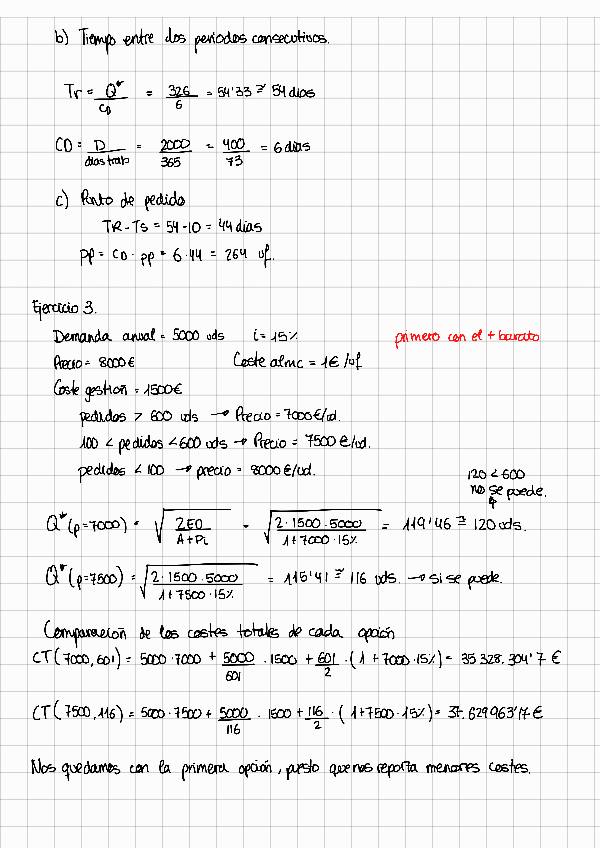 b) Tiempo entre dos periodos consecutivos.
Tr = Q* / CD = 326 / 6 = 54'33 ≅ 54 dias
CD = D / dias trab = 2000 / 365 = 400 / 73 = 6 dias
c) Punto de pedido
TR - TS = 54 - 10 = 44 dias
PP = CD · pp = 6 · 44 = 264 uf.
Ejercicio 3.
Demanda anual = 5000 uds i = 15% primero con el + barato
Precio = 8000 € Coste almc = 1 € /uf
Coste gestion = 1500 €
pedidos > 600 uds → Precio = 7000 €/ud.
100 < pedidos < 600 uds → Precio = 7500 €/ud.
pedidos < 100 → precio = 8000 €/ud.
120 < 600
no se puede.
Q* (p=7000) = √(2ED / A+Pi) = √(2·1500·5000 / 1+7000·15%) = 119'46 ≅ 120 uds.
Q* (p=7500) = √(2·1500·5000 / 1+7500·15%) = 115'41 ≅ 116 uds. → si se puede.
Comparación de los costes totales de cada opción
CT (7000, 601) = 5000·7000 + 5000 / 601 · 1500 + 601 / 2 · (1 + 7000·15%) = 35 328.304'7 €
CT (7500, 116) = 5000·7500 + 5000 / 116 · 1500 + 116 / 2 · (1+7500·15%) = 37.629963'17 €
Nos quedamos con la primera opción, puesto que nos reporta menores costes.